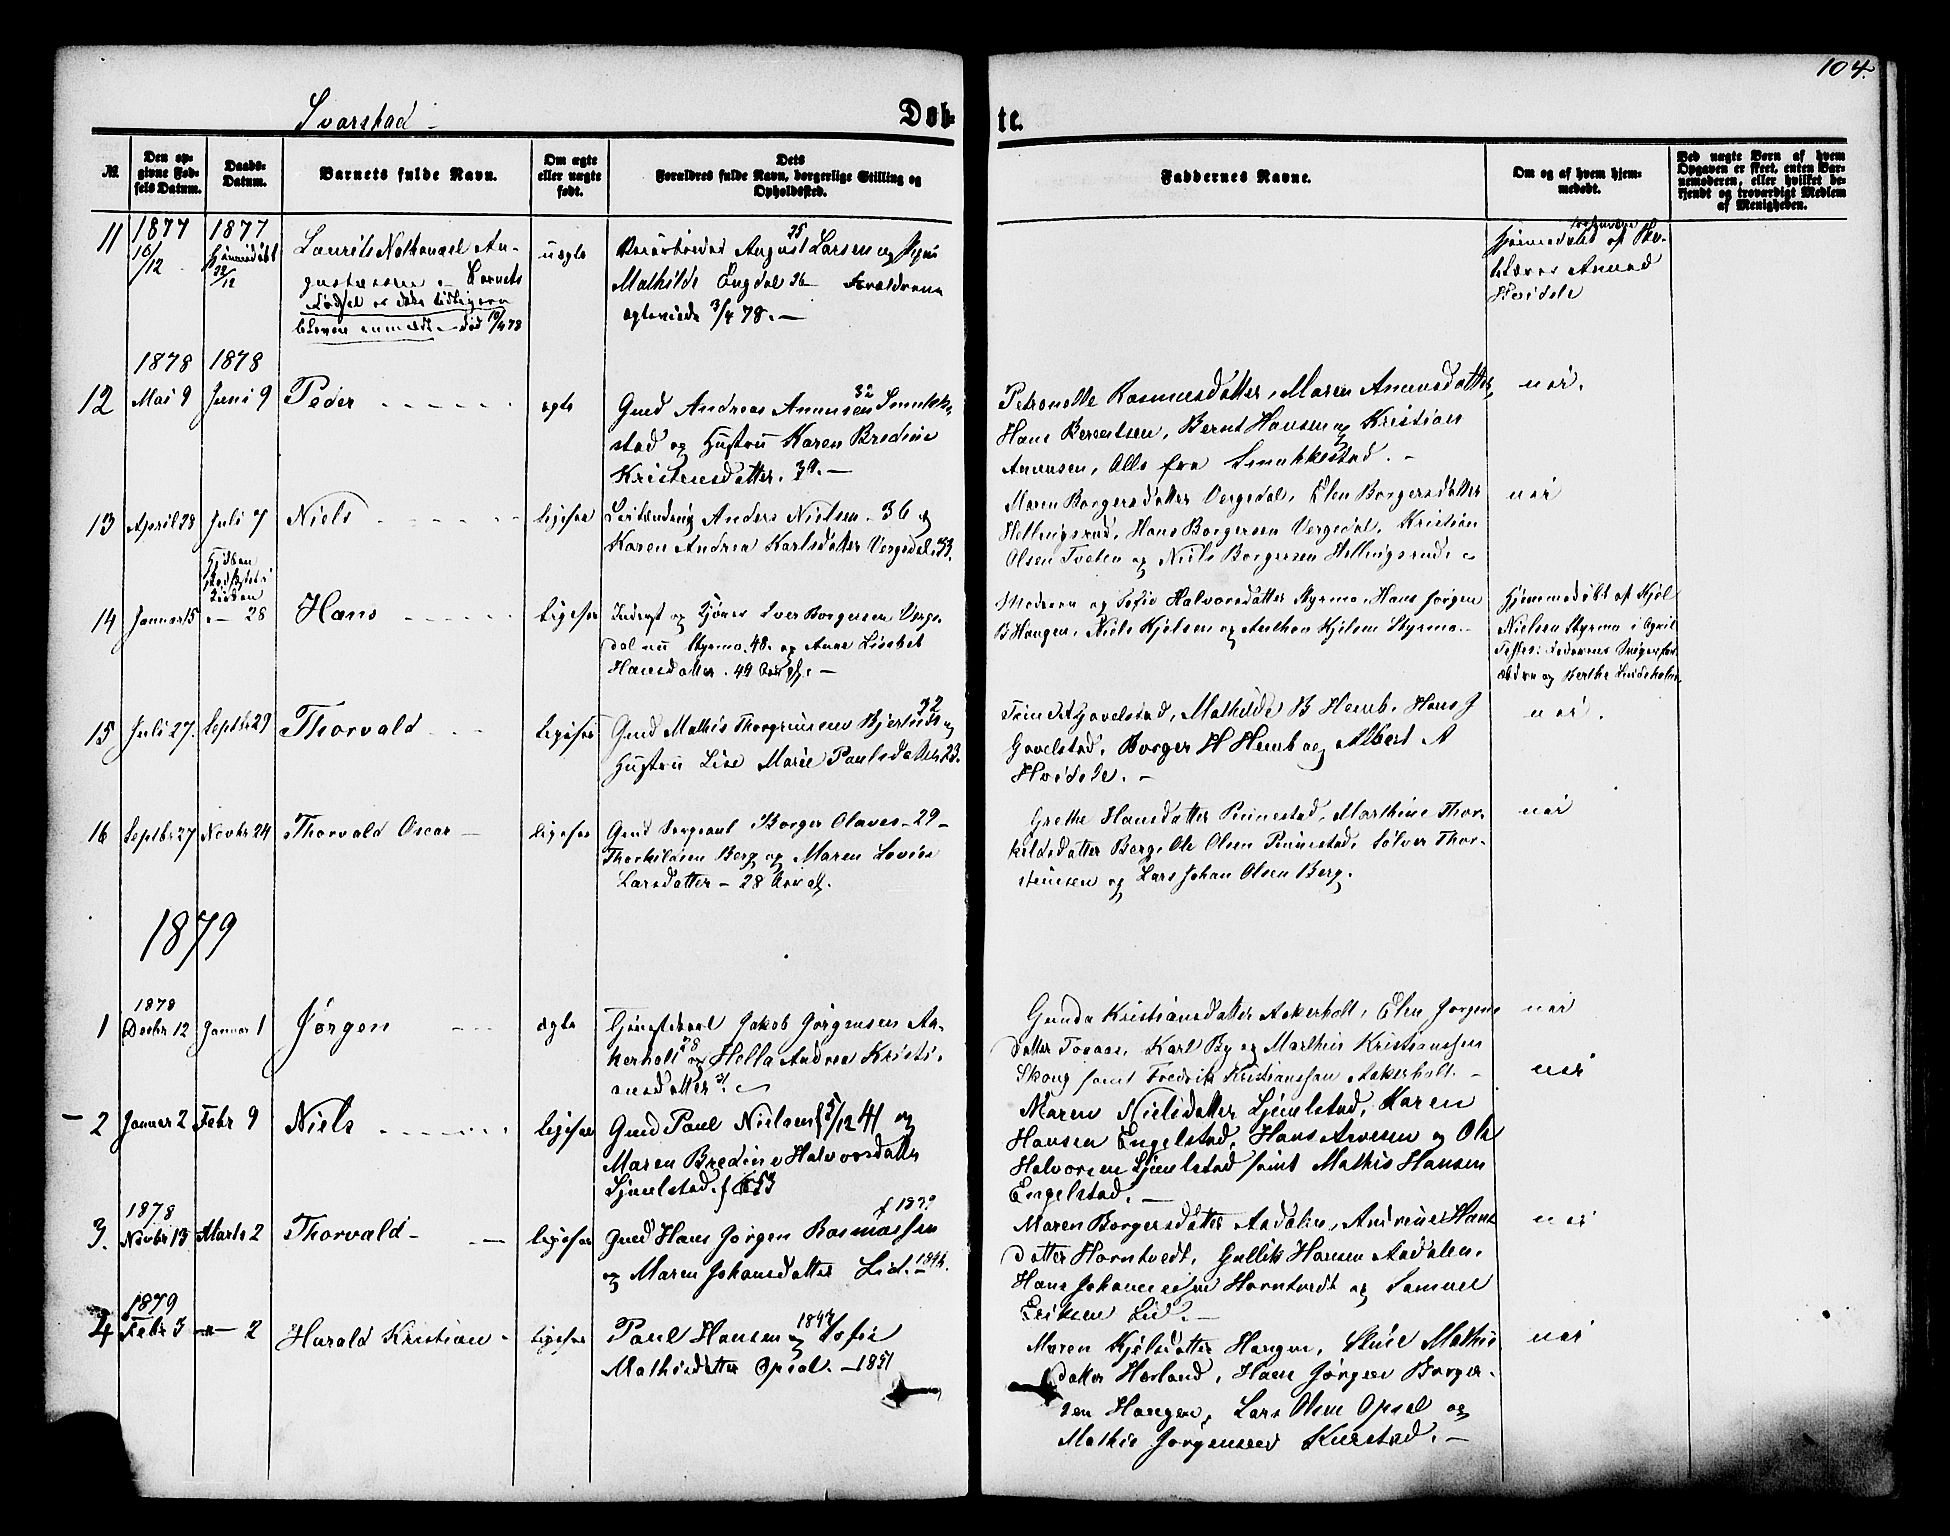 104.
Svarstad
Døb-
te.
№
Den op-
givne Fød-
sels Datum.
Daabs-
Datum.
Barnets fulde Navn.
Om ægte
eller uægte
født.
Dets
Forældres fulde Navn, borgerlige Stilling og
Opholdssted.
Faddernes Navne.
Om og af hvem hjem-
medøbt.
Ved uægte Børn af hvem
Opgaven er skeet, enten Bar-
nemoderen, eller hvilket be-
kjendt og troværdigt Medlem
af Menigheden.
11
1877
16/12
1877
Hjemmedøbt
22/12
Laurits Nathanael Au-
gustsen - Barnets
Fødsel er ikke tidligere
bleven anmeldt - død 10/4 78
uægte
August Larsen 35 og Pige
Mathilde Engdal 26 Forældrene
ægteviede 3/4 78. -
Hjemmedøbt af
Amund
Hvidsle
1878
1878
12
Mai 9
Juni 9
Peder
ægte
Gmd Andreas Amunsen 32 Smukke-
stad og Hustru Karen Bredine
Kristensdatter. 39. -
Petronelle Rasmusdatter, Maren Amunsdatter,
Hans Berentsen, Bernt Hansen og Kristian
Amunsen, Alle fra Smukkestad. -
nei.
13
April 28
Juli 7
Niels
ligesaa
Anders Nielsen - 36 og
Karen Andrea Karlsdatter Vergedal. 33.
Maren Borgersdatter Vergedal, Elen Borgersdatter
Hellingsrud, Hans Borgersen Vergedal, Kristian
Olsen Tveten og Niels Borgersen Hellingsrud.
nei
14
Januar 15
- 28
Hans
ligesaa
Inderst og Iver Borgersen Verge-
dal nu Styrmo. 48. og Anne Lisebet
Hansdatter. 44 Aar gl. -
Moderen og Sofie Halvorsdatter Styrmo, Hans Jørgen
B Haugen, Niels Kjølsen og Anthon Kjølsen Styrmo -
Hjemmedøbt af Kjøl
Nielsen Styrmo i April
og Berthe
15
Juli 27.
Septbr 29
Thorvald
ligesaa
Gmd Mathis Thorgrimsen Bjerknes 32 og
Hustru Lise Marie Paulsdatter 23.
Gavelstad, Mathilde B Hemb, Hans J
Gavelstad, Borger H Hemb og Albert A
Hvidsle. -
nei.
16
Septbr 27
Novbr 24
Thorvald Oscar -
ligesaa
Gmd Sergeant Borger Olaves - 29 -
Thorkildsen Berg og Maren Lovise
Larsdatter - 28 Aar gl.
Grethe Hansdatter Pinnestad, Marthine Thor-
kildsdatter Berg, Ole Olsen Pinnestad, Sølver Thor-
stensen og Lars Johan Olsen Berg.
nei
1879
1
1878
Decbr 12
Januar 1
Jørgen
ægte
Jakob Jørgensen Aa-
kerholt 28 og Hella Andrea Kristi-
ansdatter 21.
Gunda Kristiansdatter Aakerholt, Elen Jørgens-
datter Foraas, Karl By og Marthin Kristianssen
Skoug samt Fredrik Kristianssen Aakerholt. -
nei
2
Januar 2
Febr 9
Niels
ligesaa
Gmd Paul Nielsen f 5/12 41 og
Maren Bredine Halvorsdatter
Ljunelstad. f 53
Maren Nielsdatter Ljunelstad, Karen
Hansen Engelstad, Hans Arvesen og Ole
Halvorsen Ljunelstad samt Mathis Hansen
Engelstad. -
nei
3.
1878
Novbr 13
Marts 2
Thorvald -
ligesaa
Gmd Hans Jørgen Rasmussen f 1839
og Maren Johansdatter Lid. - 1846.
Maren Borgersdatter Aadalen, Andrine Hans
datter Horntvedt, Gullik Hansen Aadalen,
Hans Johannessen Horntvedt og Samuel
Eriksen Lid. -
nei
4
1879
Febr 3
- 2
Harald Kristian -
ligesaa
Paul Hansen 1847 og Sofie
Mathisdatter Opsal. - 1851
Maren Kjølsdatter Haugen, Stine Mathis
datter Havland, Hans Jørgen Borger-
sen Haugen, Lars Olsen Opsal og
Mathis Jørgensen Kurstad. -
nei